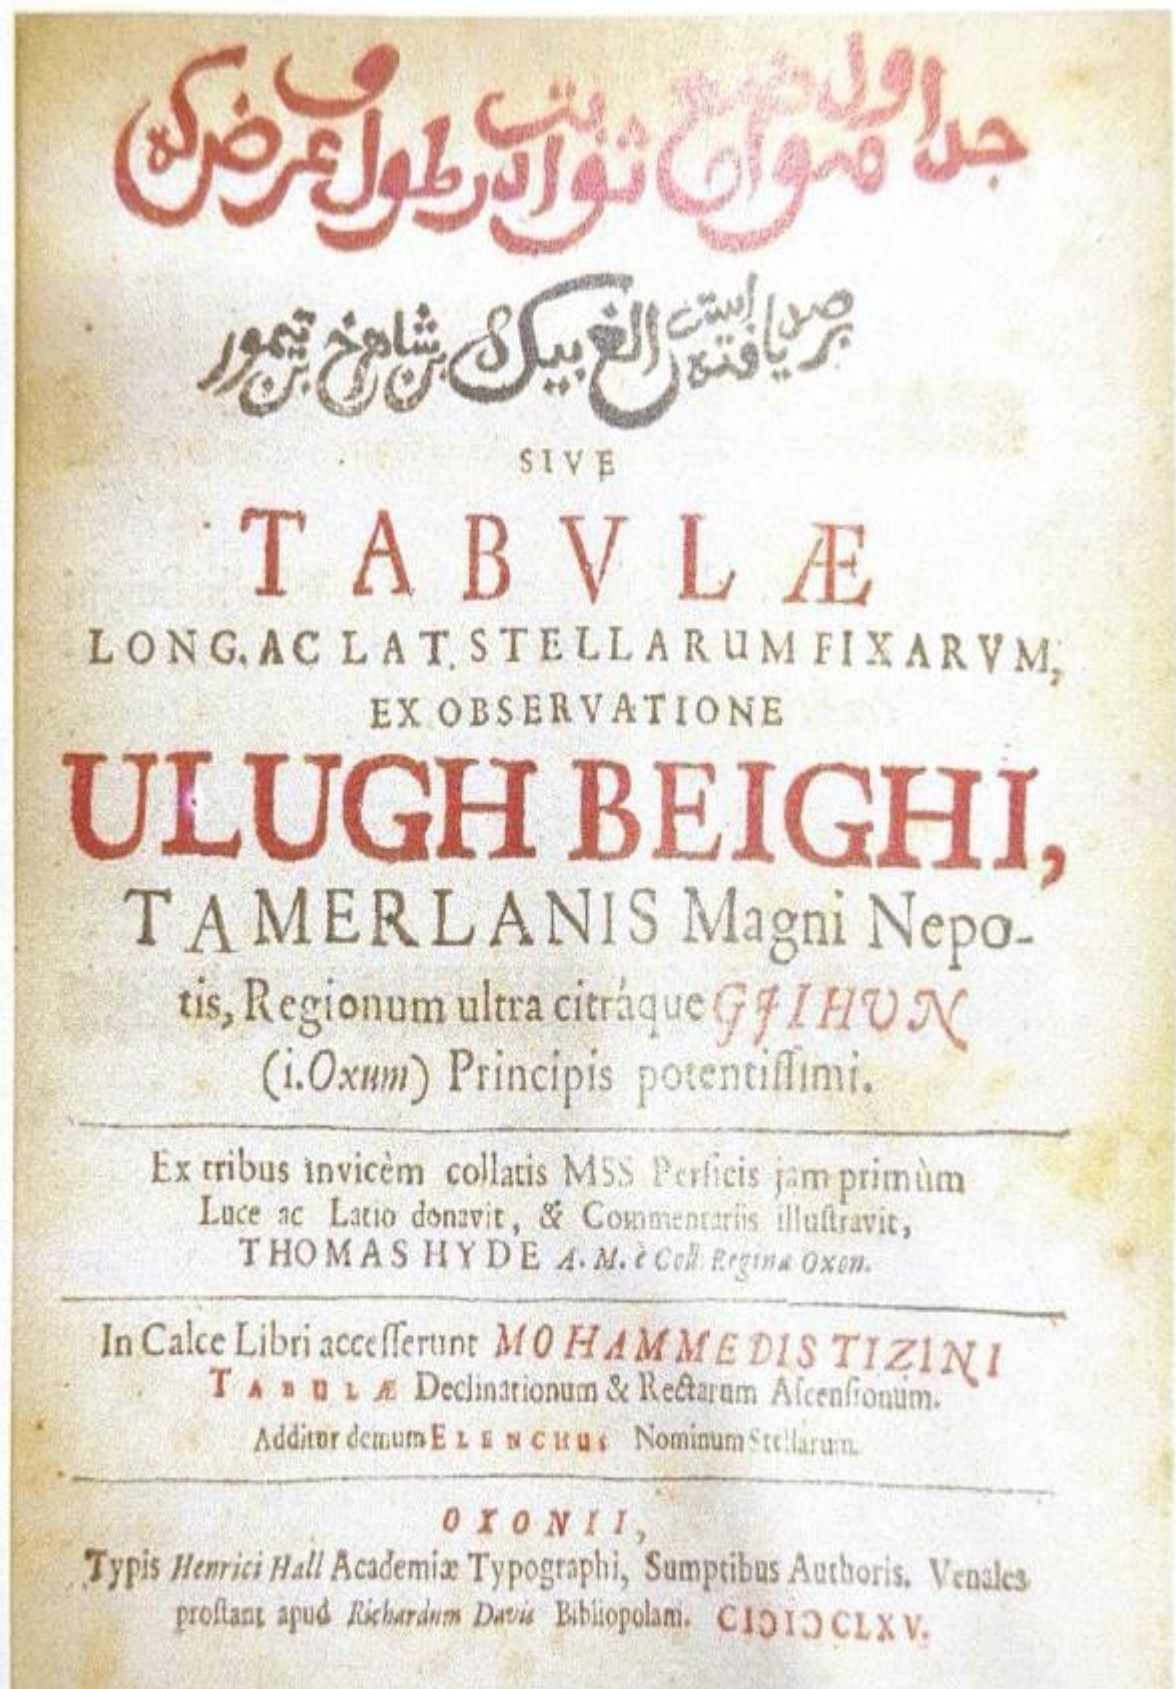 جداول مواضع ثوابت در طول و عرض که
برصد یافته است الغ بیک بن شاهرخ بن تیمور
SIVE
TABVLÆ
LONG. AC LAT. STELLARUM FIXARVM,
EX OBSERVATIONE
ULUGH BEIGHI,
TAMERLANIS Magni Nepo-
tis, Regionum ultra citráque GJIHUN
(i. Oxum) Principis potentiſſimi.
Ex tribus invicèm collatis MSS Perſicis jam primùm
Luce ac Latio donavit, & Commentariis illuſtravit,
THOMAS HYDE A. M. è Coll. Reginæ Oxon.
In Calce Libri acceſſerunt MOHAMMEDIS TIZINI
TABULÆ Declinationum & Rectarum Aſcenſionum.
Additur demum ELENCHUS Nominum Stellarum.
OXONII,
Typis Henrici Hall Academiæ Typographi, Sumptibus Authoris. Venales
proſtant apud Richardum Davis Bibliopolam. CIƆIƆCLXV.